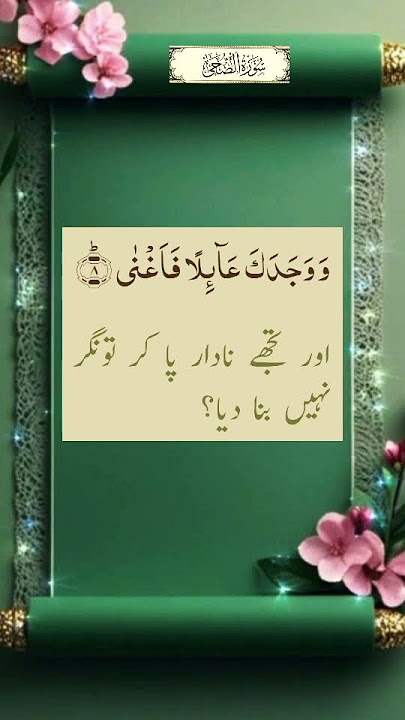 سُوْرَةُ الضُّحٰى
وَوَجَدَكَ عَآئِلًا فَاَغْنٰىؕ ۝۸
اور تجھے نادار پا کر تونگر
نہیں بنا دیا؟